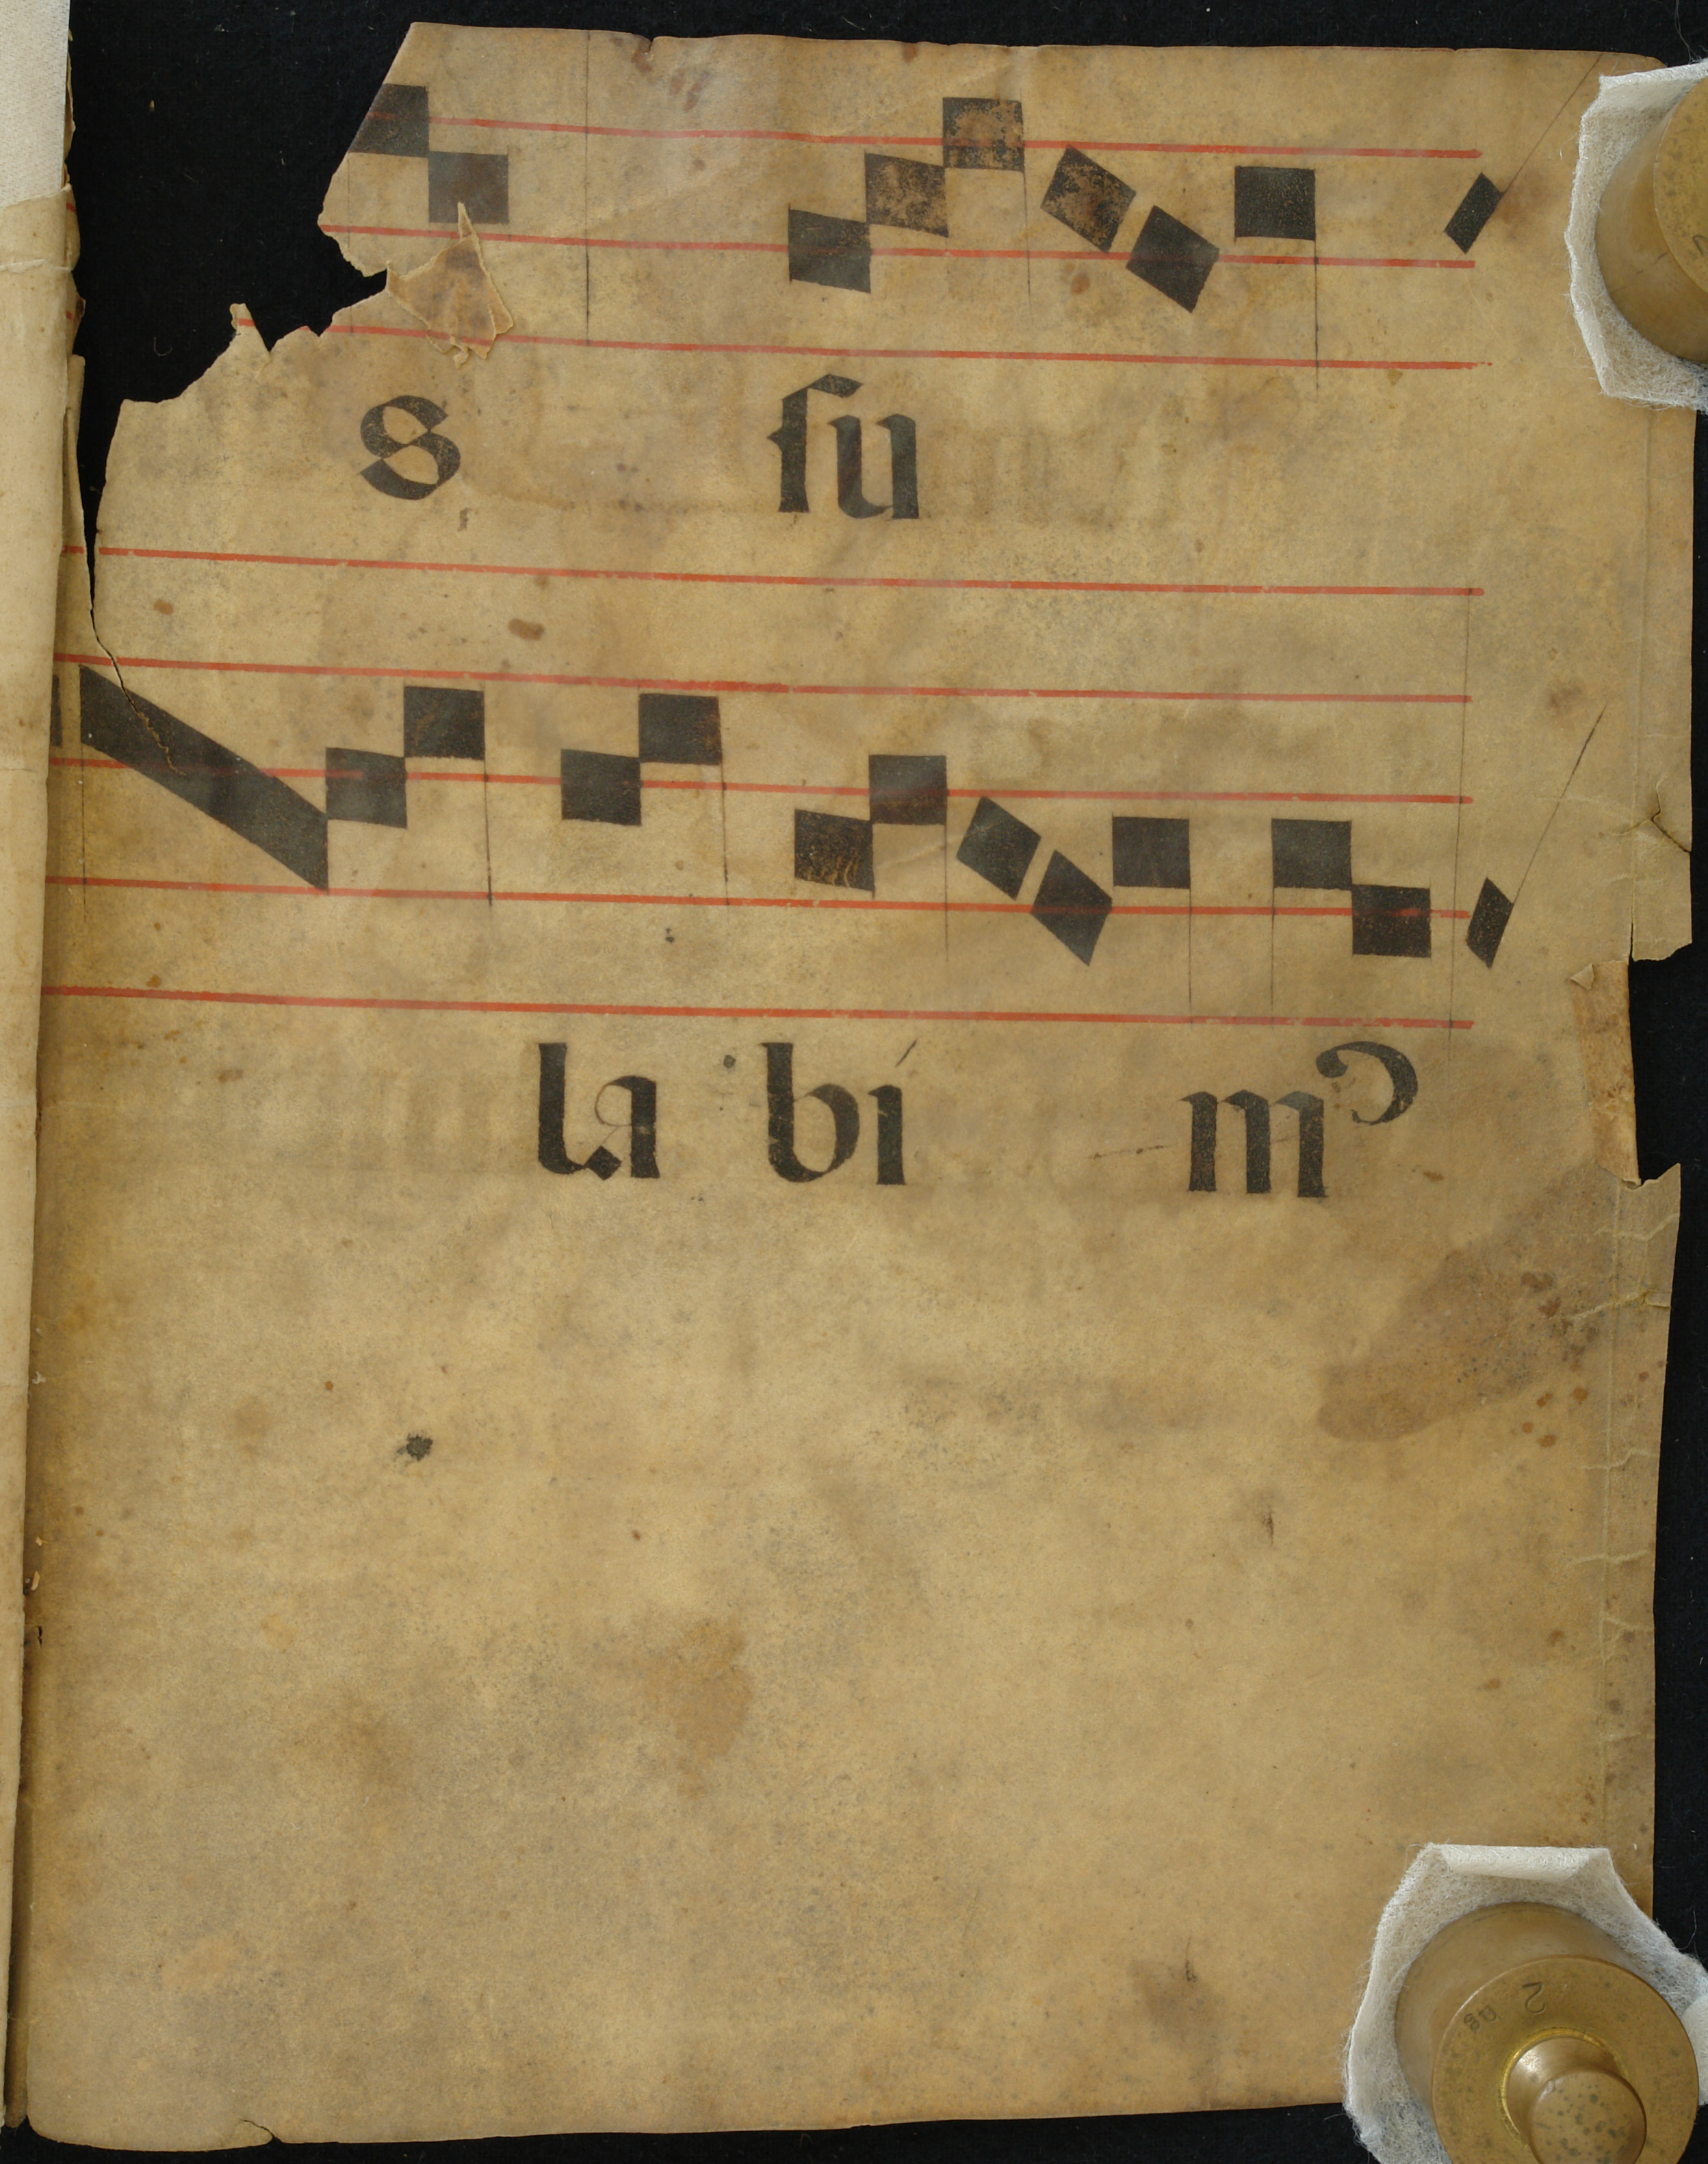 s ſu
la bi mꝰ